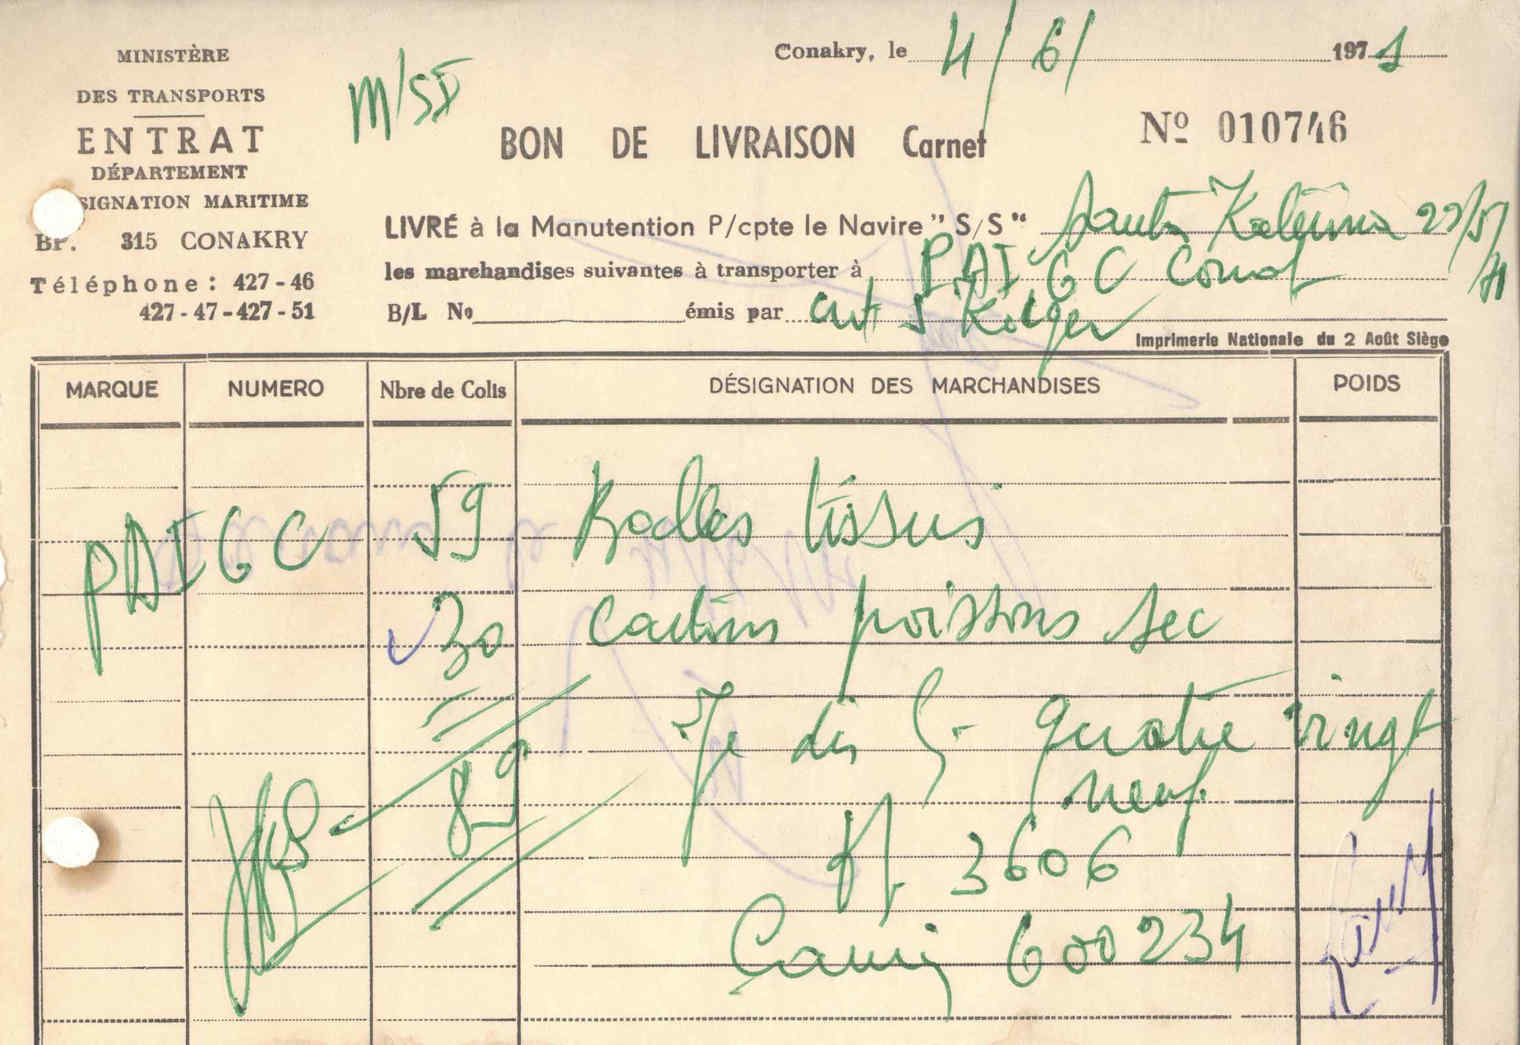 MINISTÈRE
DES TRANSPORTS
ENTRAT
DÉPARTEMENT
SIGNATION MARITIME
BP. 315 CONAKRY
Téléphone: 427-46
427-47-427-51
M/SD
Conakry, le 4/6/ 1971
BON DE LIVRAISON Carnet
Nº 010746
LIVRÉ à la Manutention P/cpte le Navire "S/S" Santa Katerina 22/5/71
les marchandises suivantes à transporter à PAIGC
B/L No émis par
Imprimerie Nationale du 2 Août Siège
MARQUE NUMERO Nbre de Colis DÉSIGNATION DES MARCHANDISES POIDS
PAIGC 59 Balles tissus
30 cartons poissons sec
89 quatre vingt
neuf
3606
600234